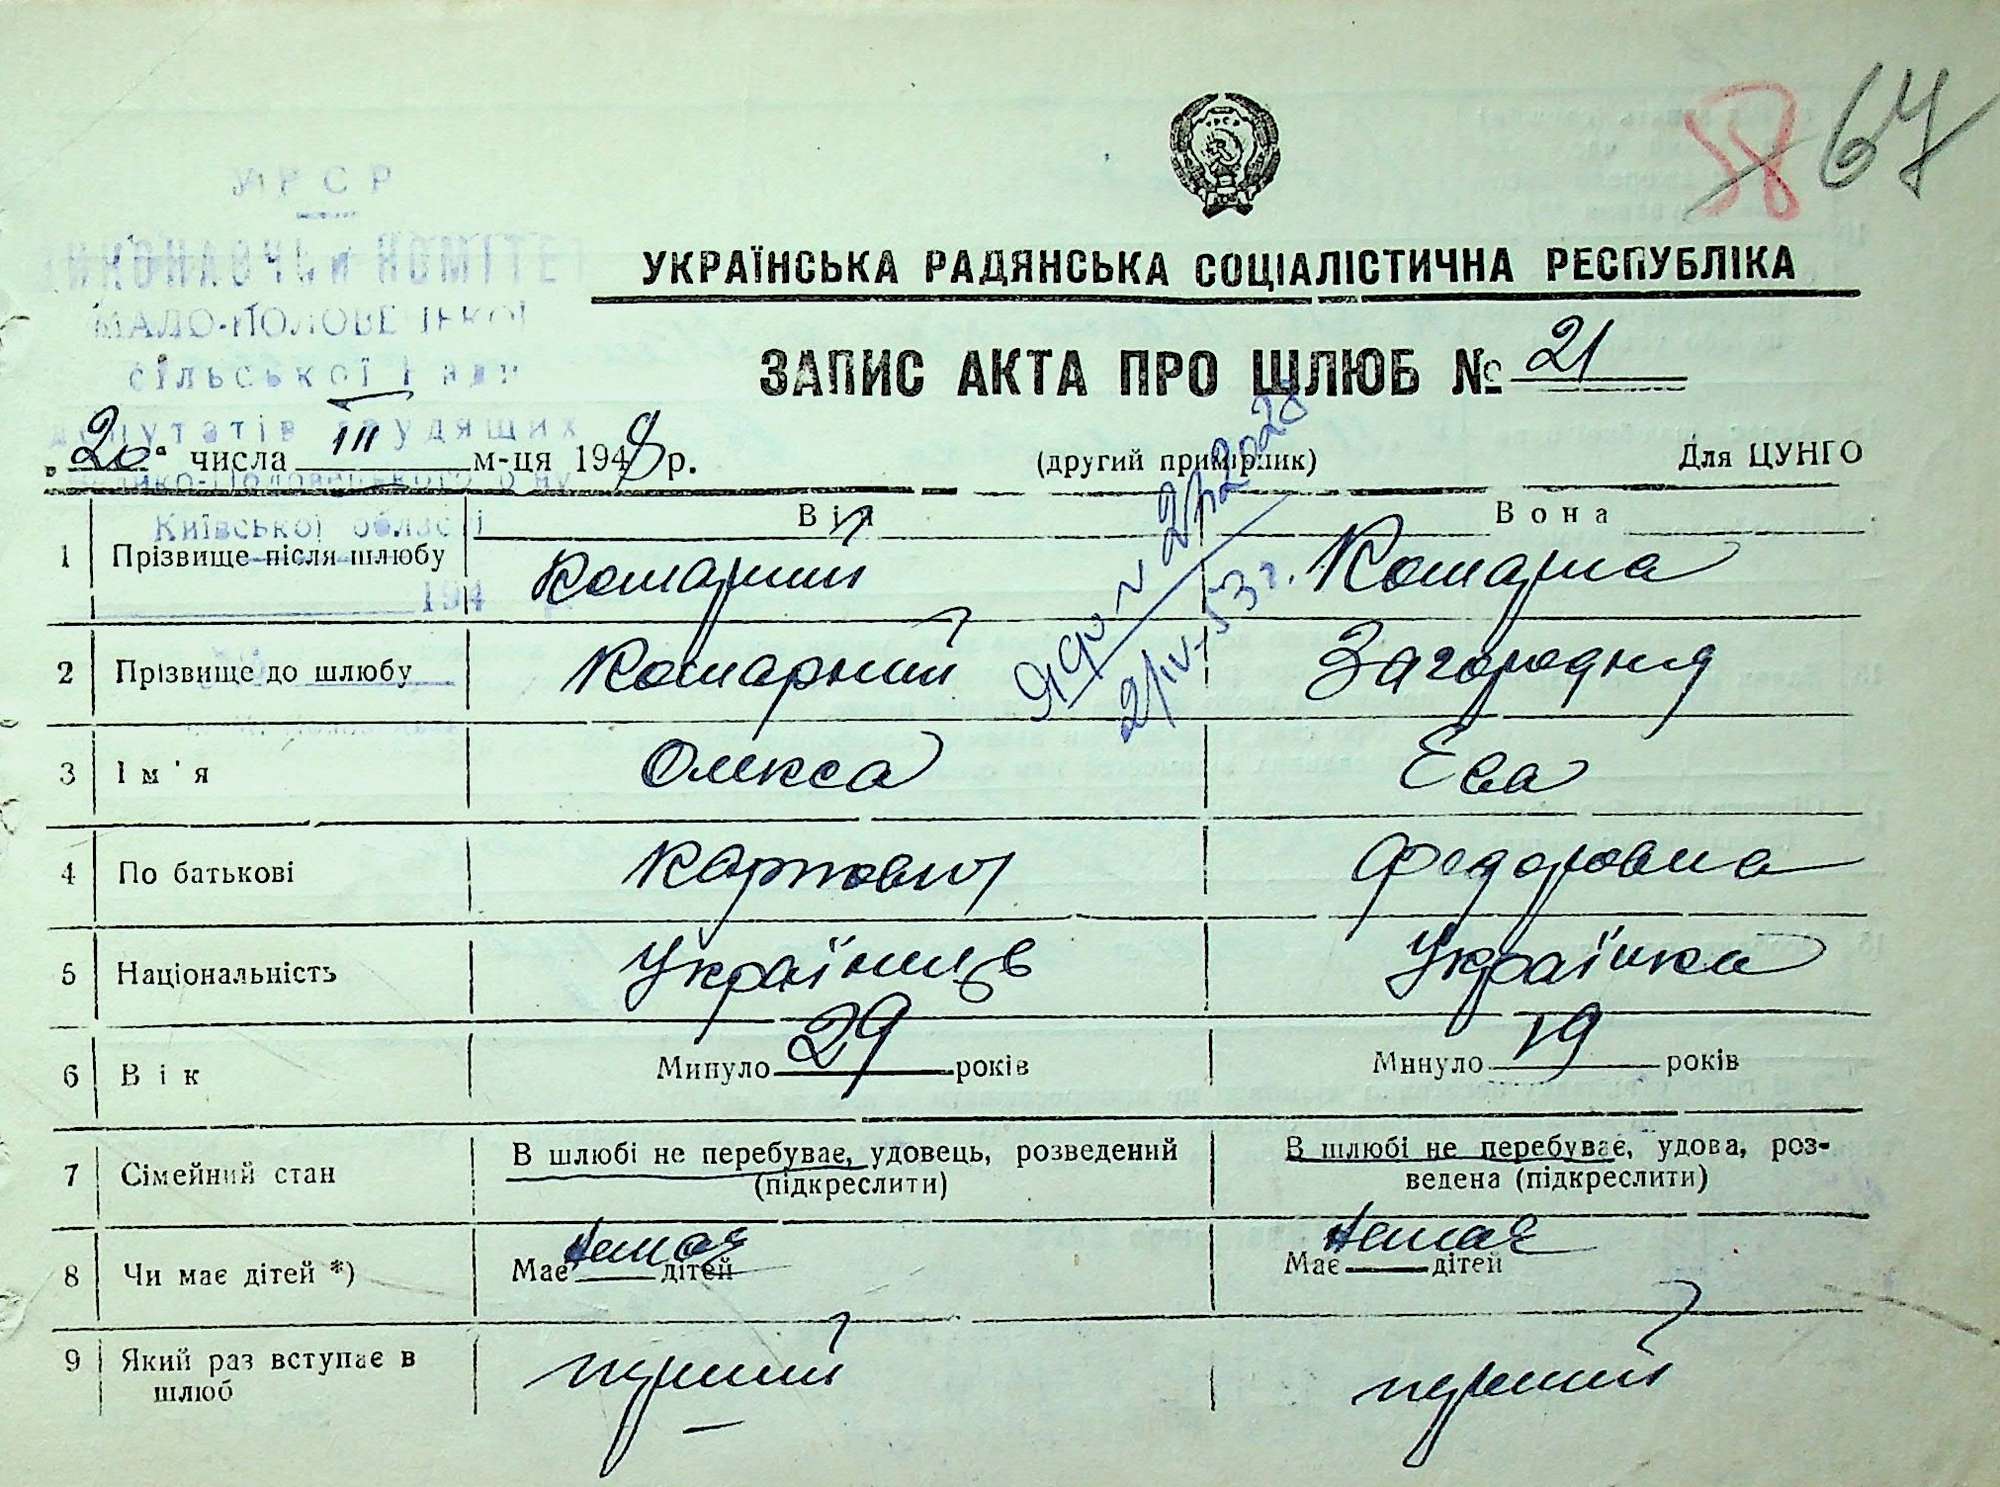 58 67
УРСР
ВИКОНАВЧИЙ КОМІТЕТ
МАЛО-ПОЛОВЕЦЬКОЇ
сільської Ради
депутатів трудящих
Велико-Половецького р-ну
Київської області
194
УКРАЇНСЬКА РАДЯНСЬКА СОЦІАЛІСТИЧНА РЕСПУБЛІКА
ЗАПИС АКТА ПРО ШЛЮБ № 21
„20" числа III м-ця 1948 р. (другий примірник) Для ЦУНГО
Він Вона
1 Прізвище після шлюбу Комарний Комарна
2 Прізвище до шлюбу Комарний Загородня
2/IV-53 г.
3 Ім'я Олекса Ева
4 По батькові Карпович Федоровна
5 Національність Українець Українка
6 Вік Минуло 29 років Минуло 19 років
7 Сімейний стан В шлюбі не перебуває, удовець, розведений В шлюбі не перебуває, удова, роз-
(підкреслити) ведена (підкреслити)
8 Чи має дітей *) Має немає дітей Має немає дітей
9 Який раз вступає в перший перший
шлюб